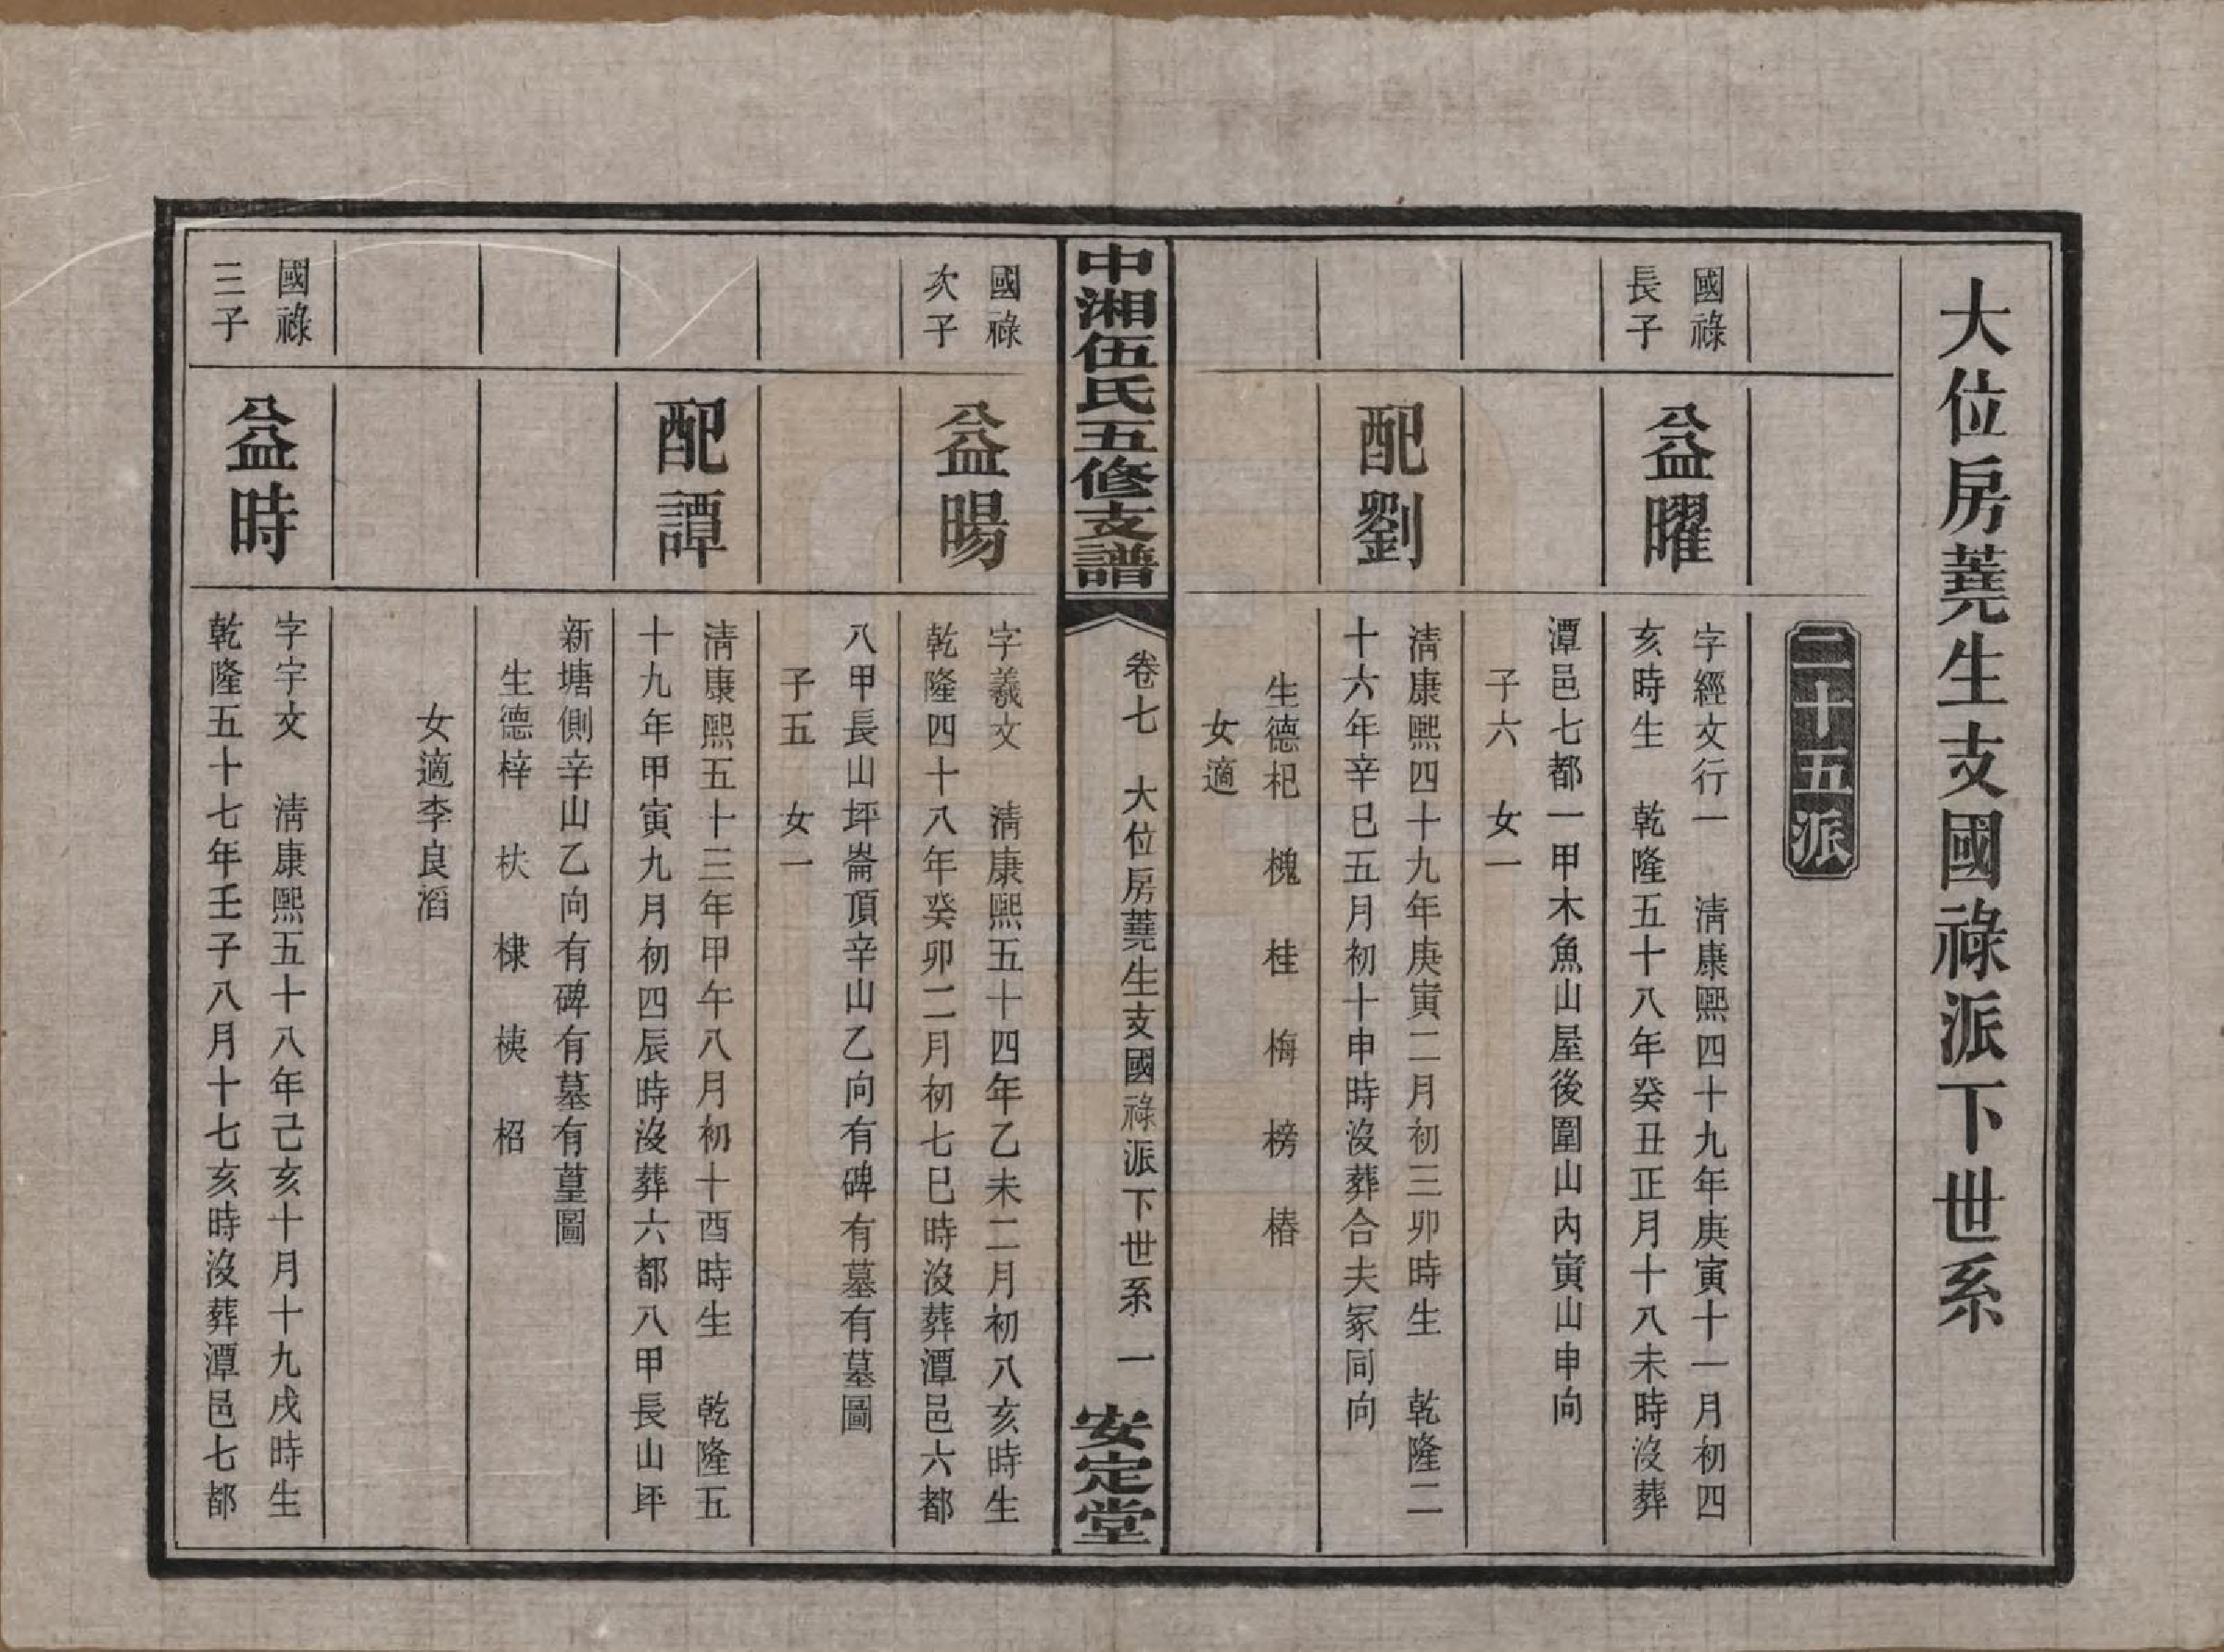 大位房蕘生支國祿派下世系
二十五派
國祿
長子
益曜
字經文行一　清康熙四十九年庚寅十一月初四
亥時生　乾隆五十八年癸丑正月十八未時沒葬
潭邑七都一甲木魚山屋後圍山內寅山申向
子六　女一
配劉
清康熙四十九年庚寅二月初三卯時生　乾隆二
十六年辛巳五月初十申時沒葬合夫冢同向
生德杞　槐　桂　梅　榜　椿
女適
中湘伍氏五修支譜
卷七　大位房蕘生支國祿派下世系　一
安定堂
國祿
次子
益暘
字羲文　清康熙五十四年乙未二月初八亥時生
乾隆四十八年癸卯二月初七巳時沒葬潭邑六都
八甲長山坪崙頂辛山乙向有碑有墓有墓圖
子五　女一
配譚
清康熙五十三年甲午八月初十酉時生　乾隆五
十九年甲寅九月初四辰時沒葬六都八甲長山坪
新塘側辛山乙向有碑有墓有墓圖
生德梓　杕　棣　桋　柖
女適李良滔
國祿
三子
益時
字宇文　清康熙五十八年己亥十月十九戌時生
乾隆五十七年壬子八月十七亥時沒葬潭邑七都